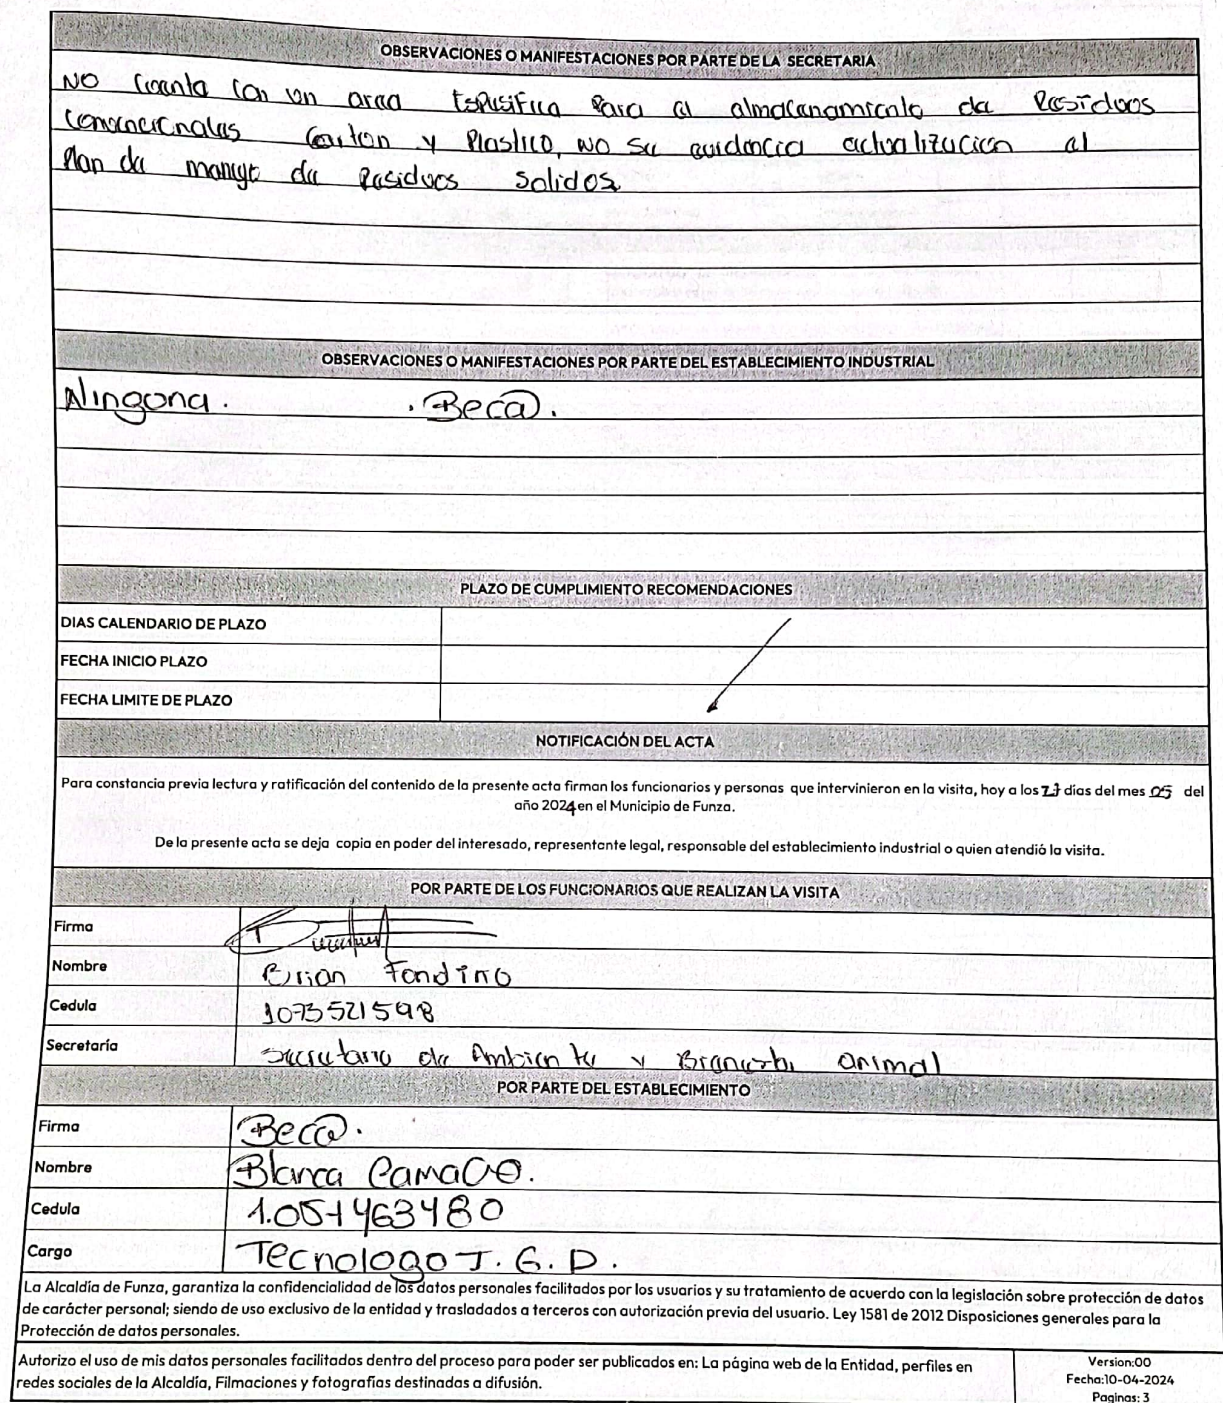 OBSERVACIONES O MANIFESTACIONES POR PARTE DE LA SECRETARIA
NO Cuenta Con un area Espesifica Para el almacenamiento de Residuos
Convencionales Carton y Plastico, NO Se evidencia actualizacion al
Plan de manejo de Residuos Solidos
OBSERVACIONES O MANIFESTACIONES POR PARTE DEL ESTABLECIMIENTO INDUSTRIAL
Ninguna. . Beca.
PLAZO DE CUMPLIMIENTO RECOMENDACIONES
DIAS CALENDARIO DE PLAZO
FECHA INICIO PLAZO
FECHA LIMITE DE PLAZO
NOTIFICACIÓN DEL ACTA
Para constancia previa lectura y ratificación del contenido de la presente acta firman los funcionarios y personas que intervinieron en la visita, hoy a los días del mes 05 del
año 2024 en el Municipio de Funza.
De la presente acta se deja copia en poder del interesado, representante legal, responsable del establecimiento industrial o quien atendió la visita.
POR PARTE DE LOS FUNCIONARIOS QUE REALIZAN LA VISITA
Firma
Nombre Brian Fandiño
Cedula 1073521598
Secretaría Secretaria de Ambiente y Bienestar animal
POR PARTE DEL ESTABLECIMIENTO
Firma Beca.
Nombre Blanca Camacho.
Cedula 1.051463480
Cargo Tecnologo J. G. D.
La Alcaldía de Funza, garantiza la confidencialidad de los datos personales facilitados por los usuarios y su tratamiento de acuerdo con la legislación sobre protección de datos
de carácter personal; siendo de uso exclusivo de la entidad y trasladados a terceros con autorización previa del usuario. Ley 1581 de 2012 Disposiciones generales para la
Protección de datos personales.
Autorizo el uso de mis datos personales facilitados dentro del proceso para poder ser publicados en: La página web de la Entidad, perfiles en
redes sociales de la Alcaldía, Filmaciones y fotografías destinadas a difusión.
Version:00
Fecha:10-04-2024
Paginas: 3